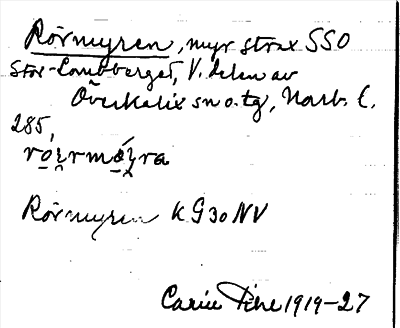 Rörmyren, myr strax SSO
Stor-Lombberget, V. delen av
Överkalix sn o. tg, Norb. l.
285,
Rörmyren KG30NV
Carin Pihl 1919-27